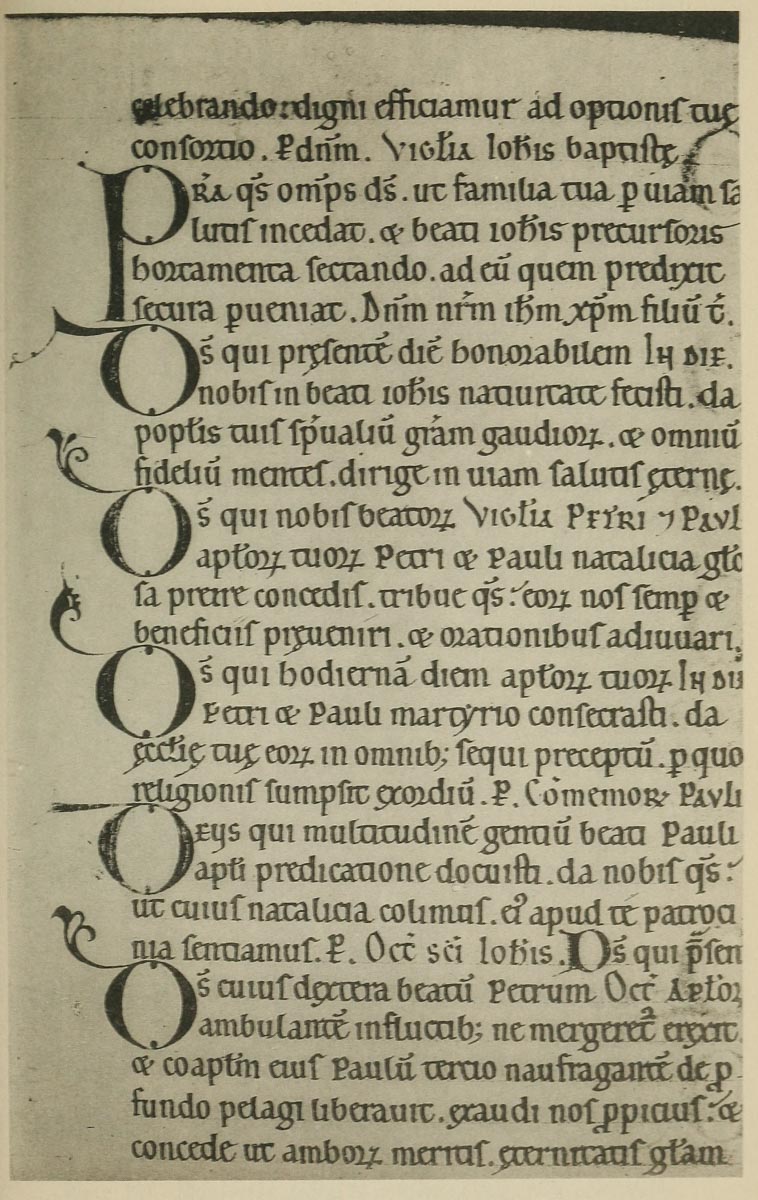 celebrando: digni efficiamur adoptionis tuę
consortio. P̲ dn̄m. Vigl̄ia Ioh̄is baptistę
PRĀ qs̄ om̄ps ds̄. ut familia tua ꝑ uiam sa
lutis incedat. & beati ioh̄is precursoris
hortamenta sectando. ad eū quem predixit
secura ꝑueniat. Dn̄m nr̄m ih̄m xp̄m filiū t̄.
Ds̄ qui pręsentē diē honorabilem IN DIE.
nobis in beati ioh̄is natiuitate fecisti. da
popl̄is tuis sp̄ualiū grām gaudioꝝ. & omniū
fideliū mentes. dirige in uiam salutis ęternę.
Ds̄ qui nobis beatoꝝ Vigl̄ia PETRI ⁊ PAVL
apl̄oꝝ tuoꝝ Petri & Pauli natalicia gl̄o
sa preire concedis. tribue qs̄. eoꝝ nos semꝑ &
beneficiis pręueniri. & orationibus adiuuari.
Ds̄ qui hodiernā diem apl̄oꝝ tuoꝝ IN DIE
Petri & Pauli martyrio consecrasti. da
ęcclię tuę eoꝝ in omnib; sequi preceptū. ꝑ quo
religionis sumpsit exordiū. P̲. Cōmemoꝝ PAVLI
DEus qui multitudinē gentiū beati Pauli
apl̄i predicatione docuisti. da nobis qs̄.
ut cuius natalicia colimus. eꝰ apud te patroci
nia sentiamus. P̲. Oct̄ sc̄i Ioh̄is. Ds̄ qui p̄sen
Ds̄ cuius dextera beatū Petrum Oct̄ APL̄Oꝝ
ambulantē influctib; ne mergeret̃ erexit
& coapl̄m eius Paulū tercio naufragantē de ꝓ
fundo pelagi liberauit. exaudi nos ꝓpicius. &
concede ut amboꝝ meritis. ęternitatis gl̄am